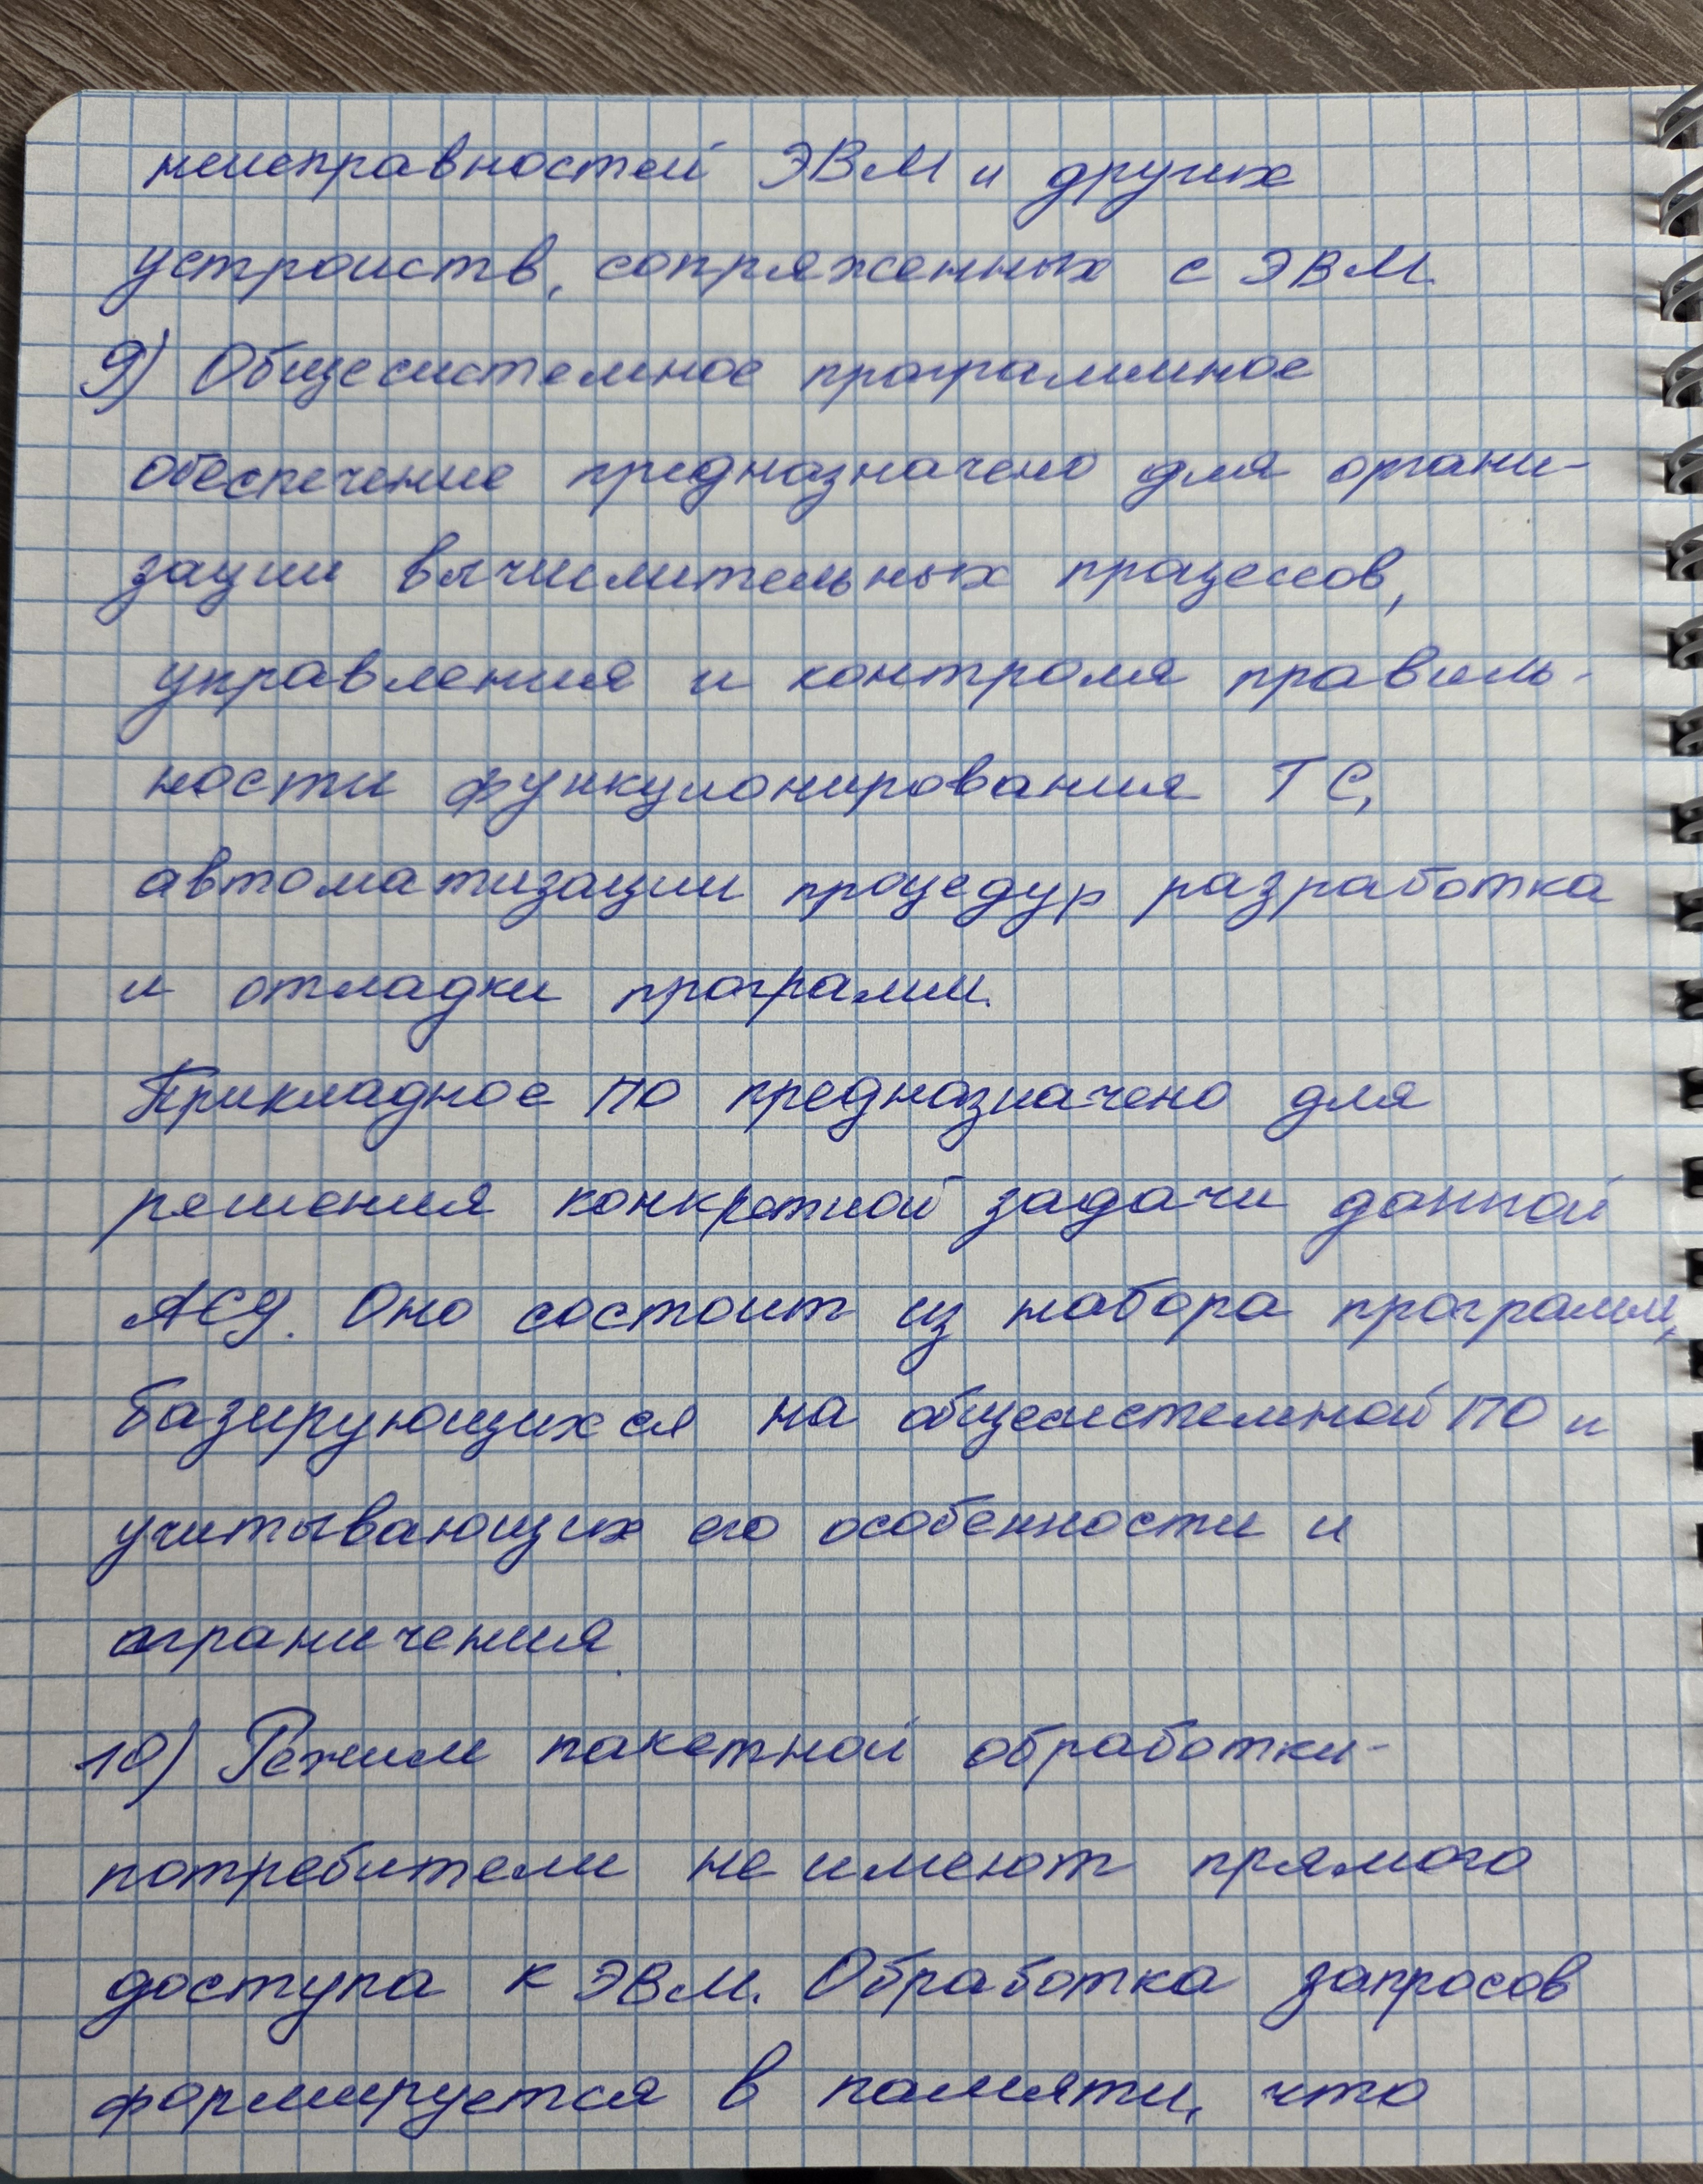 неисправностей ЭВМ и других
устроиств, сопряженных с ЭВМ.
9) Общесистемное программное
обеспечение предназначено для органи-
зации вычислительных процессов,
управления и контроля правиль-
ности функционирования ТС,
автоматизации процедур разработка
и отладки программ.
Прикладное ПО предназначено для
решения конкретной задачи данной
АСУ. Оно состоит из набора программ,
базирующихся на общесистемной ПО и
учитывающих его особенности и
ограничения.
10) Режим пакетной обработки-
потребители не имеют прямого
доступа к ЭВМ. Обработка запросов
формируется в памяти, что